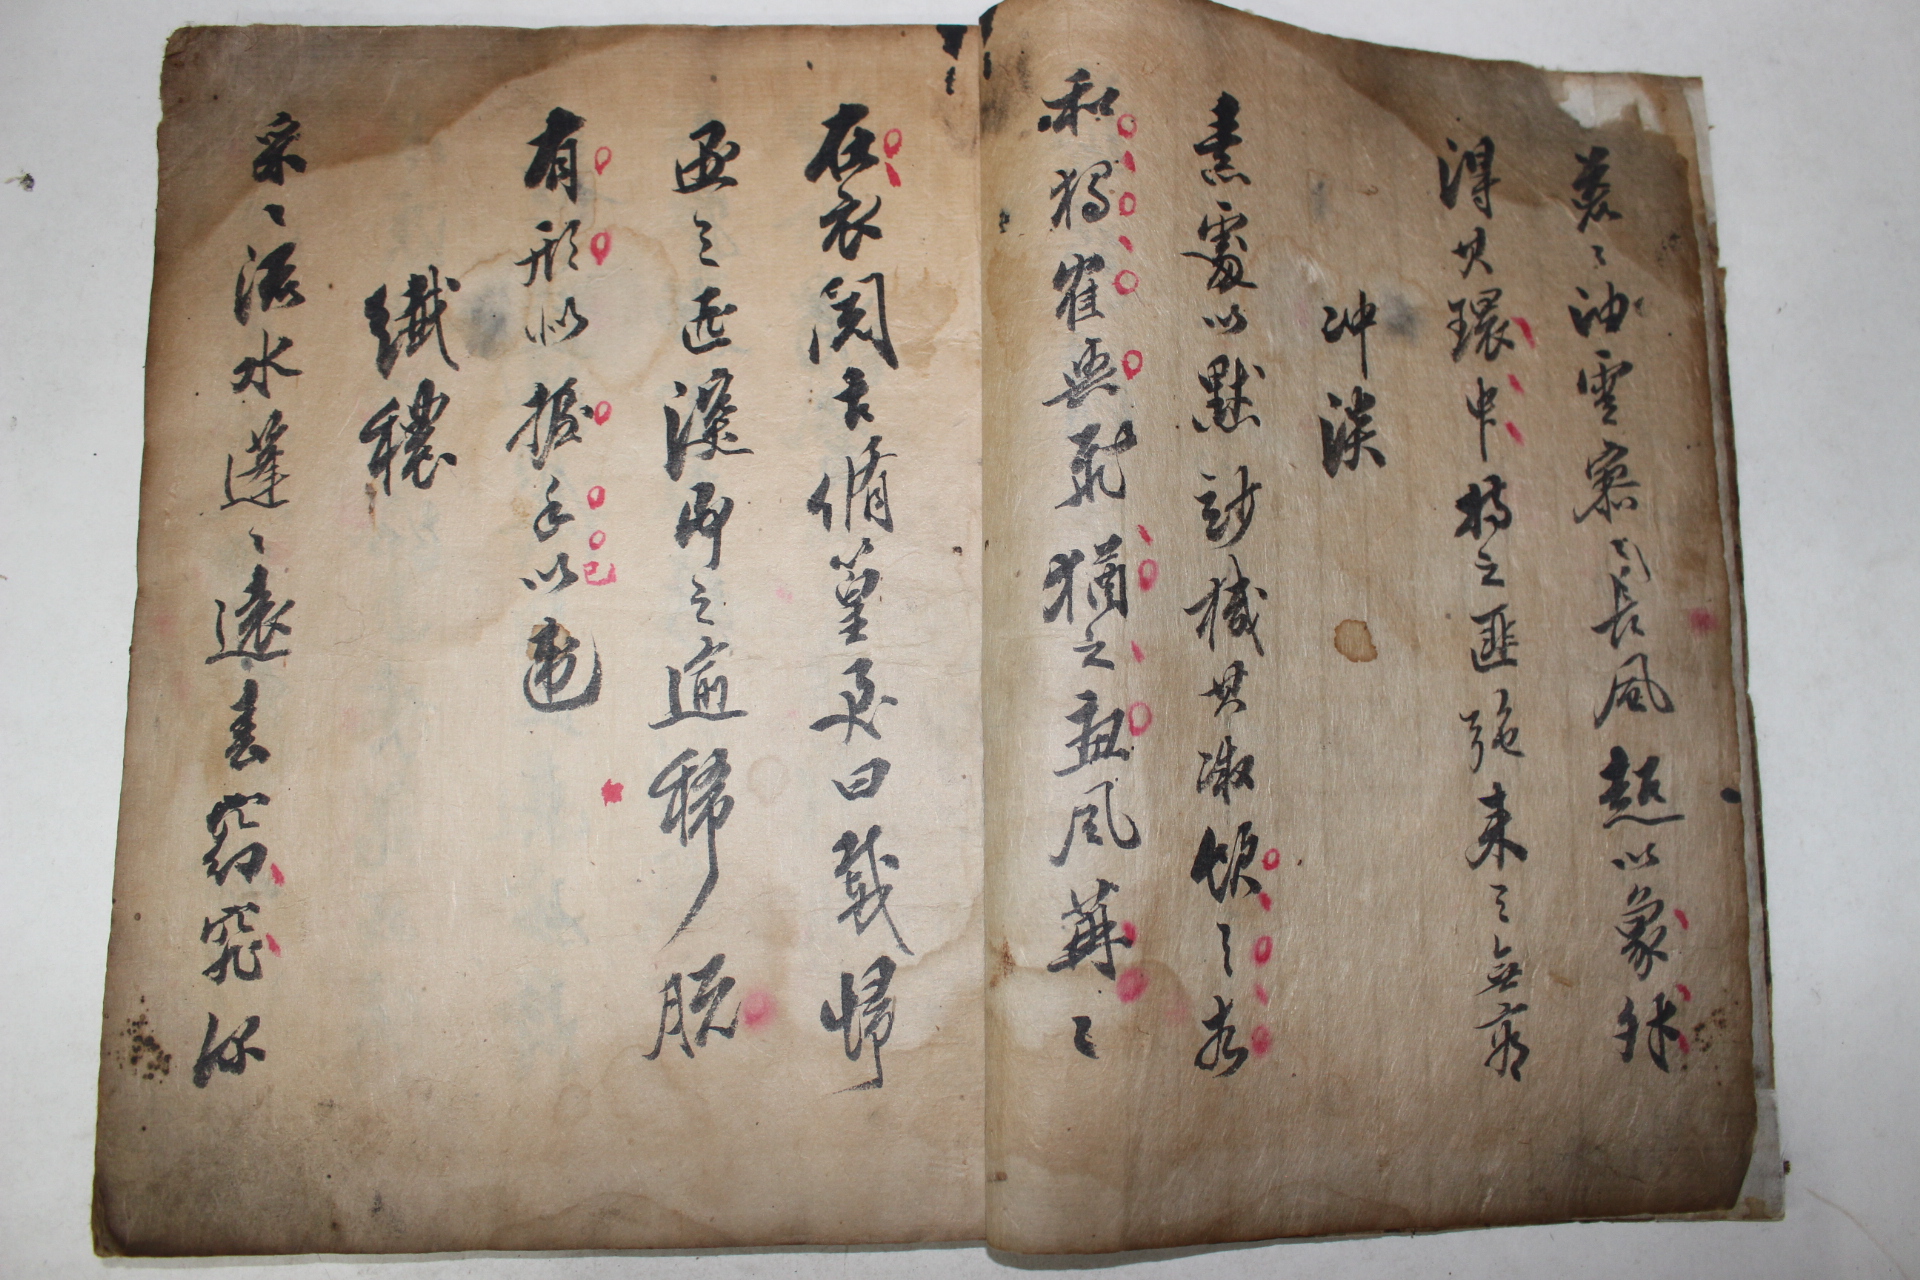 荒〻油雲寥〻長風超以象外
得其環中持之匪强来之無窮
冲淡
素處以默妙機其微飲之太
和獨鶴與飛猶之惠風苒〻
在衣閱音脩篁美曰載歸
遇之匪深即之逾稀脫
有形似握手以違
已
纖穠
采〻流水蓬〻遠春窈窕深